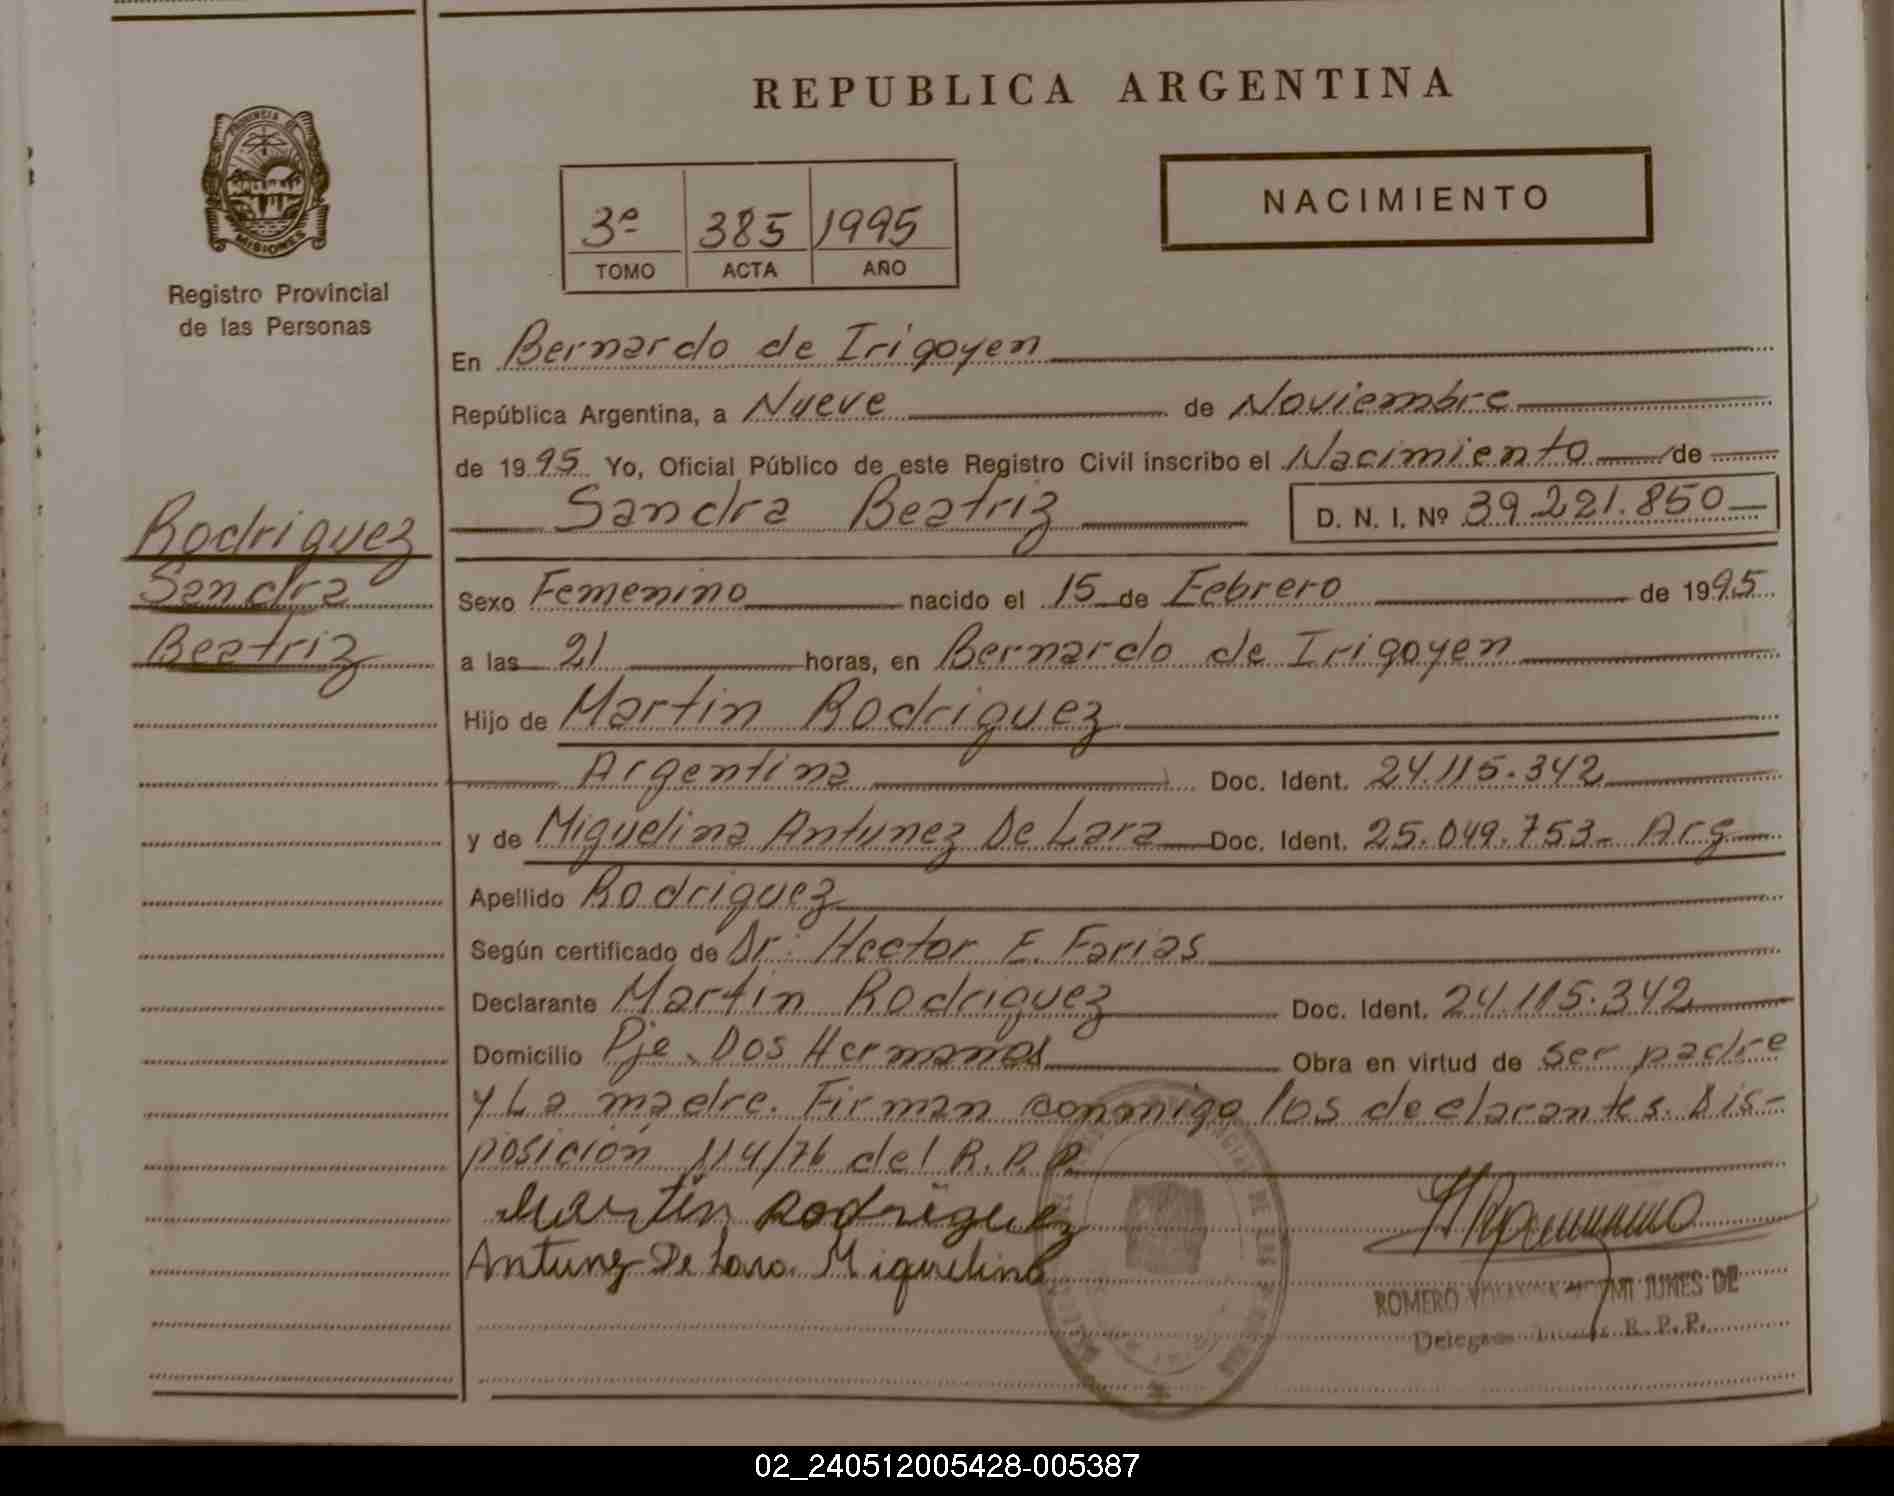 REPUBLICA ARGENTINA
PROVINCIA DE
MISIONES
Registro Provincial
de las Personas
NACIMIENTO
3º 385 1995
TOMO ACTA AÑO
En Bernardo de Irigoyen
República Argentina, a Nueve de Noviembre
de 1995 Yo, Oficial Público de este Registro Civil inscribo el Nacimiento de
Sandra Beatriz D. N. I. Nº 39.221.850
Rodriguez
Sandra
Beatriz
Sexo Femenino nacido el 15 de Febrero de 1995
a las 21 horas, en Bernardo de Irigoyen
Hijo de Martin Rodriguez
Argentina Doc. Ident. 24.115.342
y de Miguelina Antunez De Lara Doc. Ident. 25.049.753- Arg
Apellido Rodriguez
Según certificado de Dr: Hector E. Farias
Declarante Martin Rodriguez Doc. Ident. 24.115.342
Domicilio Pje. Dos Hermanas Obra en virtud de ser padre
y La madre. Firman conmigo los declarantes. Dis-
posición 114/76 del R.P.P.
Martin Rodriguez
Antunez De Lara Miguelina
ROMERO JUNES DE
R. P. P.
02_240512005428-005387